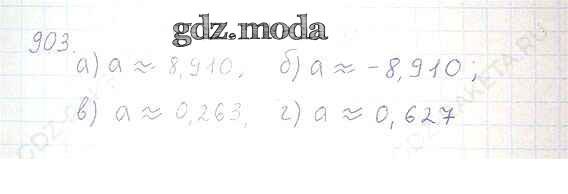 gdz.moda
903.
а) a ≈ 8,910, б) a ≈ -8,910;
в) a ≈ 0,263, г) a ≈ 0,627